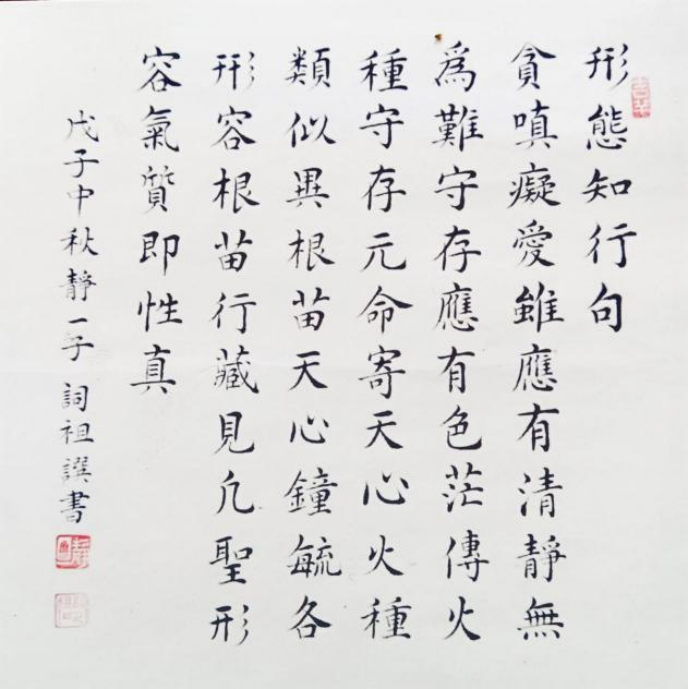 形態知行句
貪嗔癡愛雖應有清靜無
為難守存應有色茫傳火
種守存元命寄天心火種
類似異根苗天心鐘毓各
形容根苗行藏見凢聖形
容氣質即性真
戊子中秋靜一子詞祖譔書